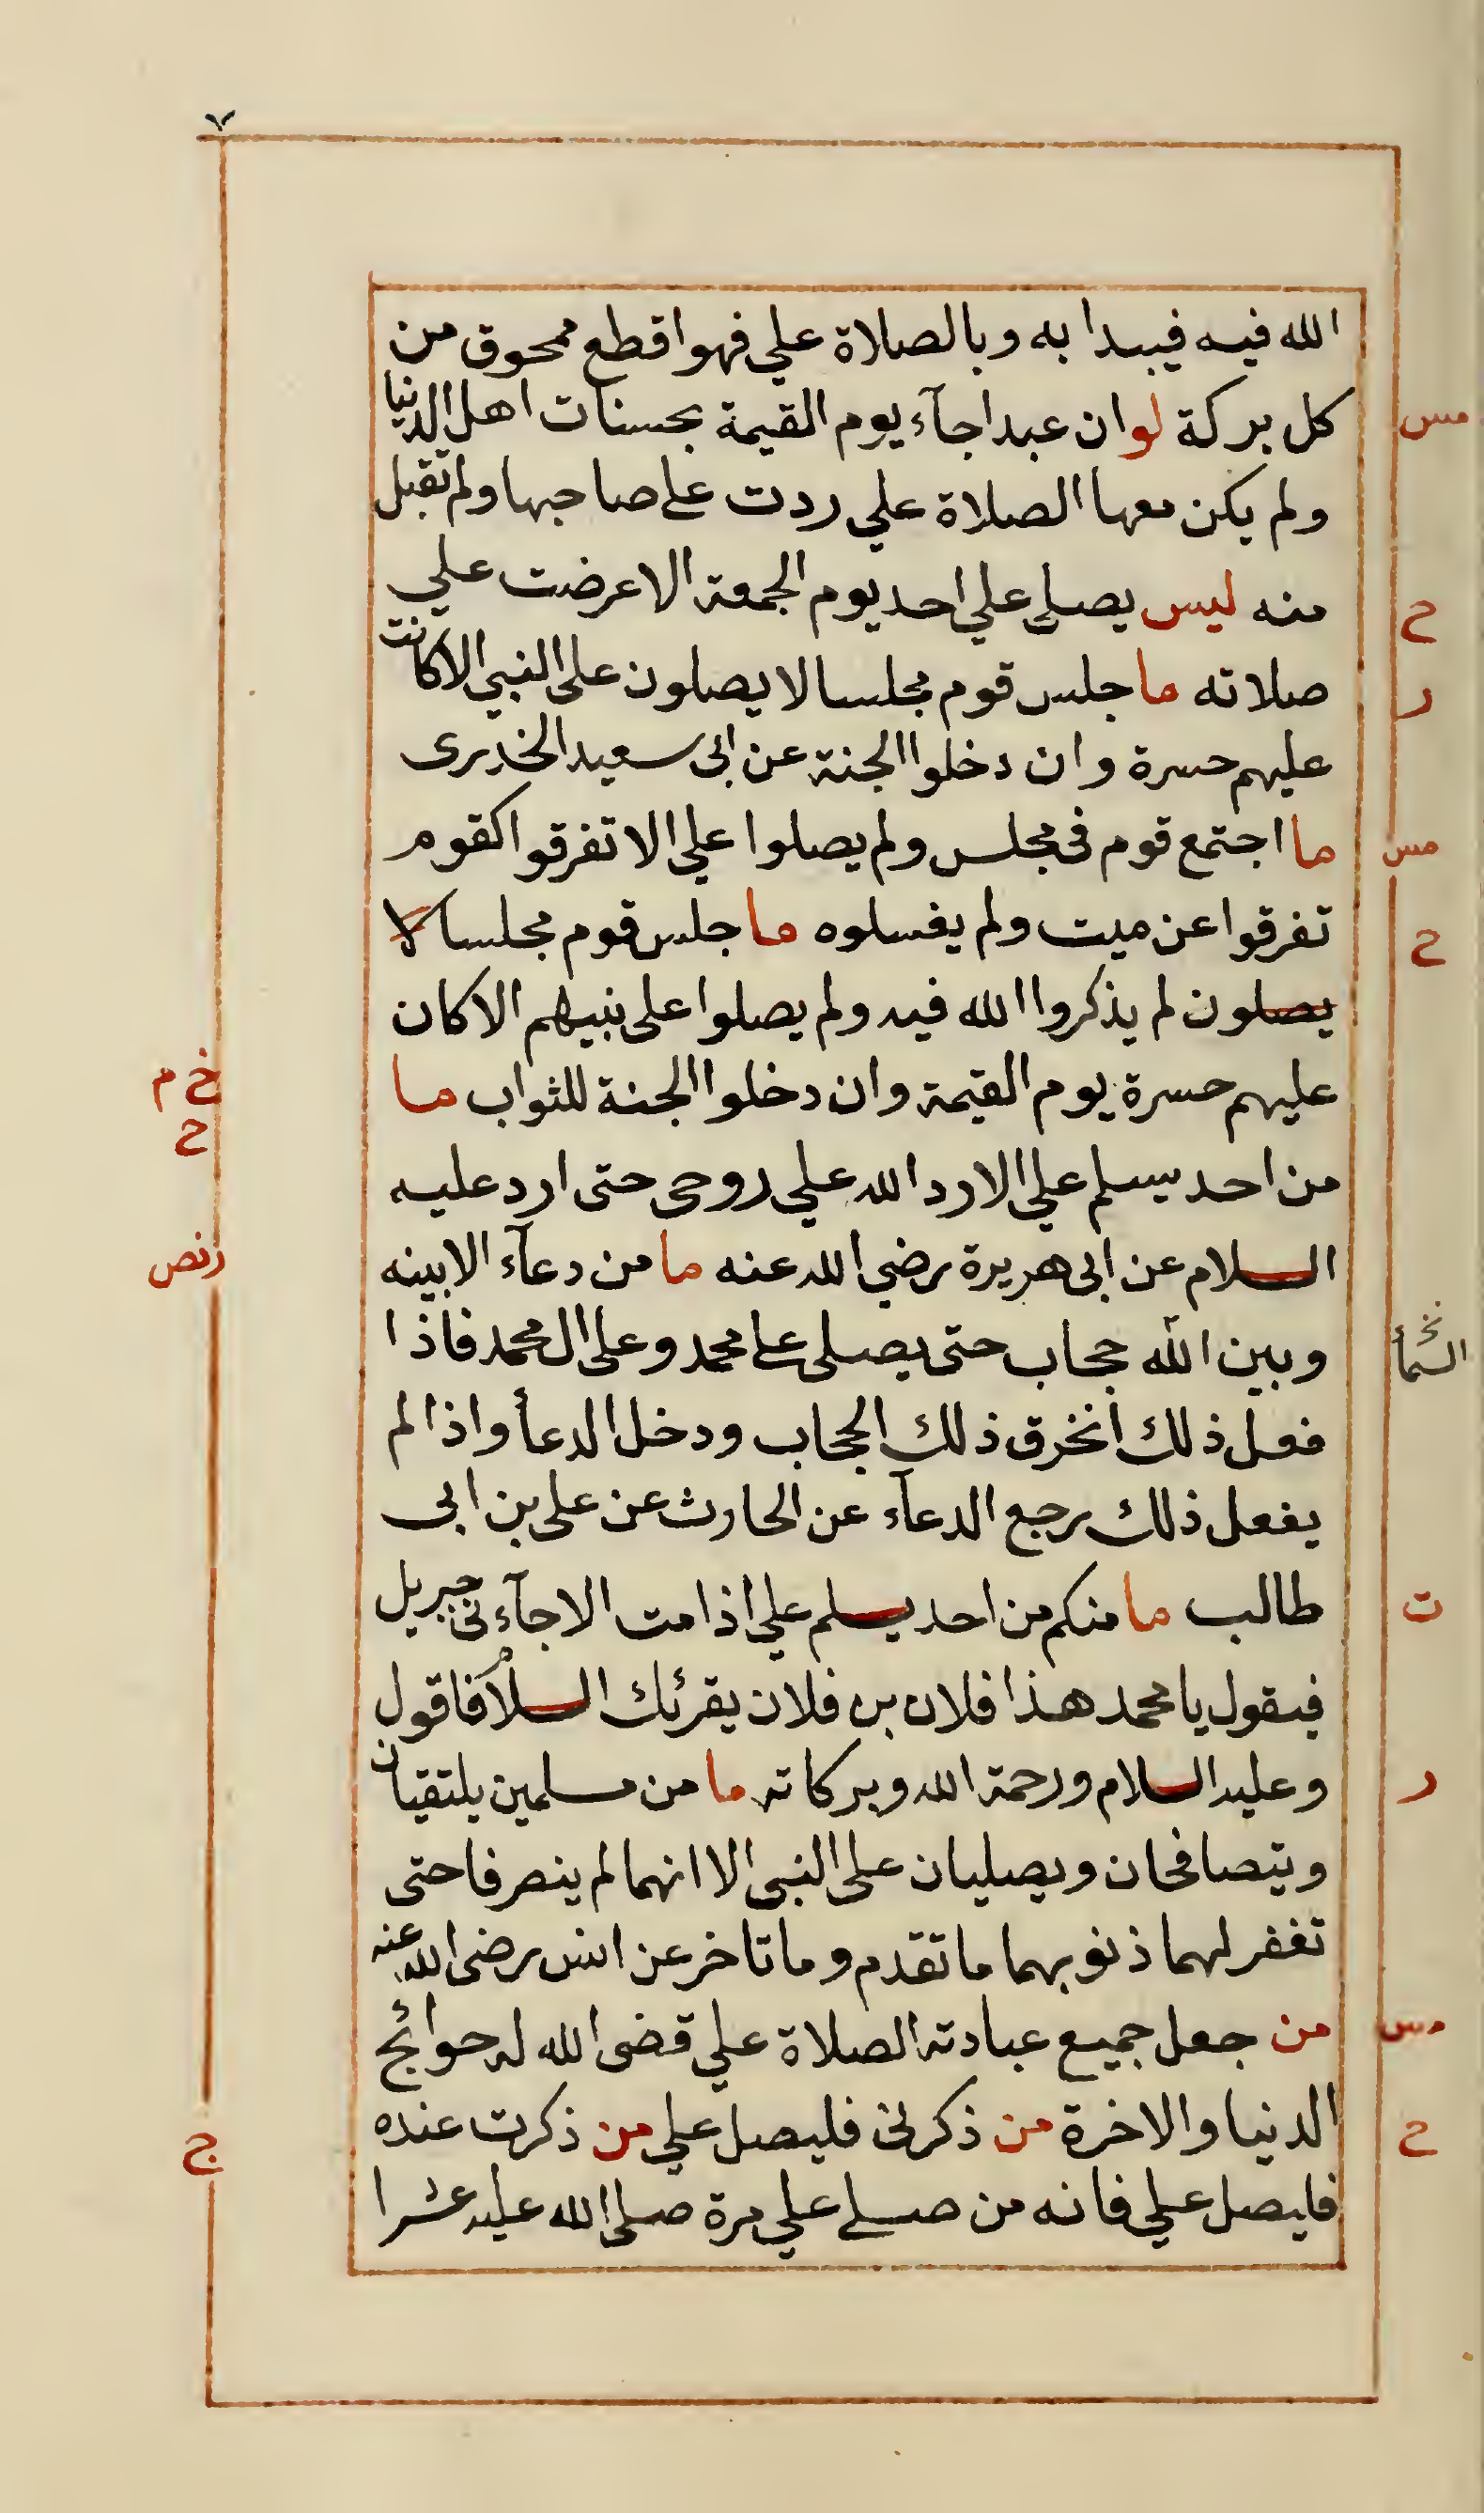 ٧
الله فيه فيبدا به وبالصلاة علي فهو اقطع ممحوق من
كل بركة لو ان عبدا جآء يوم القيمة بحسنات اهل الدنيا
مس
ولم يكن معها الصلاة علي ردت على صاحبها ولم تقبل
منه ليس يصلى علي احد يوم الجمعة الا عرضت علي
ح
صلاته ما جلس قوم مجلسا لا يصلون على النبي الا كانت
ر
عليهم حسرة وان دخلوا الجنة عن ابى سعيد الخدرى
ما اجتمع قوم فى مجلس ولم يصلوا علي الا تفرقوا كقوم
مس
تفرقوا عن ميت ولم يغسلوه ما جلس قوم مجلسا لا
ح
يصلون لم يذكروا الله فيه ولم يصلوا على نبيهم الا كان
عليهم حسرة يوم القيمة وان دخلوا الجنة للثواب ما
خ م
ح
من احد يسلم علي الا رد الله علي روحى حتى ارد عليه
السلام عن ابى هريرة رضي الله عنه ما من دعآء الا بينه
وبين الله حجاب حتى يصلى على محمد وعلى ال محمد فاذا
السمأ
فعل ذلك انخرق ذلك الحجاب ودخل الدعأ واذا لم
يفعل ذلك رجع الدعآء عن الحارث عن على بن ابى
طالب ما منكم من احد يسلم علي اذا مت الا جآءنى جبريل
ت
فيقول يا محمد هذا فلان بن فلان يقرئك السلام فاقول
وعليه السلام ورحمة الله وبركاته ما من مسلمين يلتقيان
ر
ويتصافحان ويصليان على النبى الا انهما لم ينصرفا حتى
تغفر لهما ذنوبهما ما تقدم وما تاخر عن انس رضى الله عنه
من جعل جميع عبادته الصلاة علي قضى الله له حوائج
مس
الدنيا والاخرة من ذكرنى فليصل علي من ذكرت عنده
ح
ج
فليصل علي فانه من صلى علي مرة صلى الله عليه عشرا